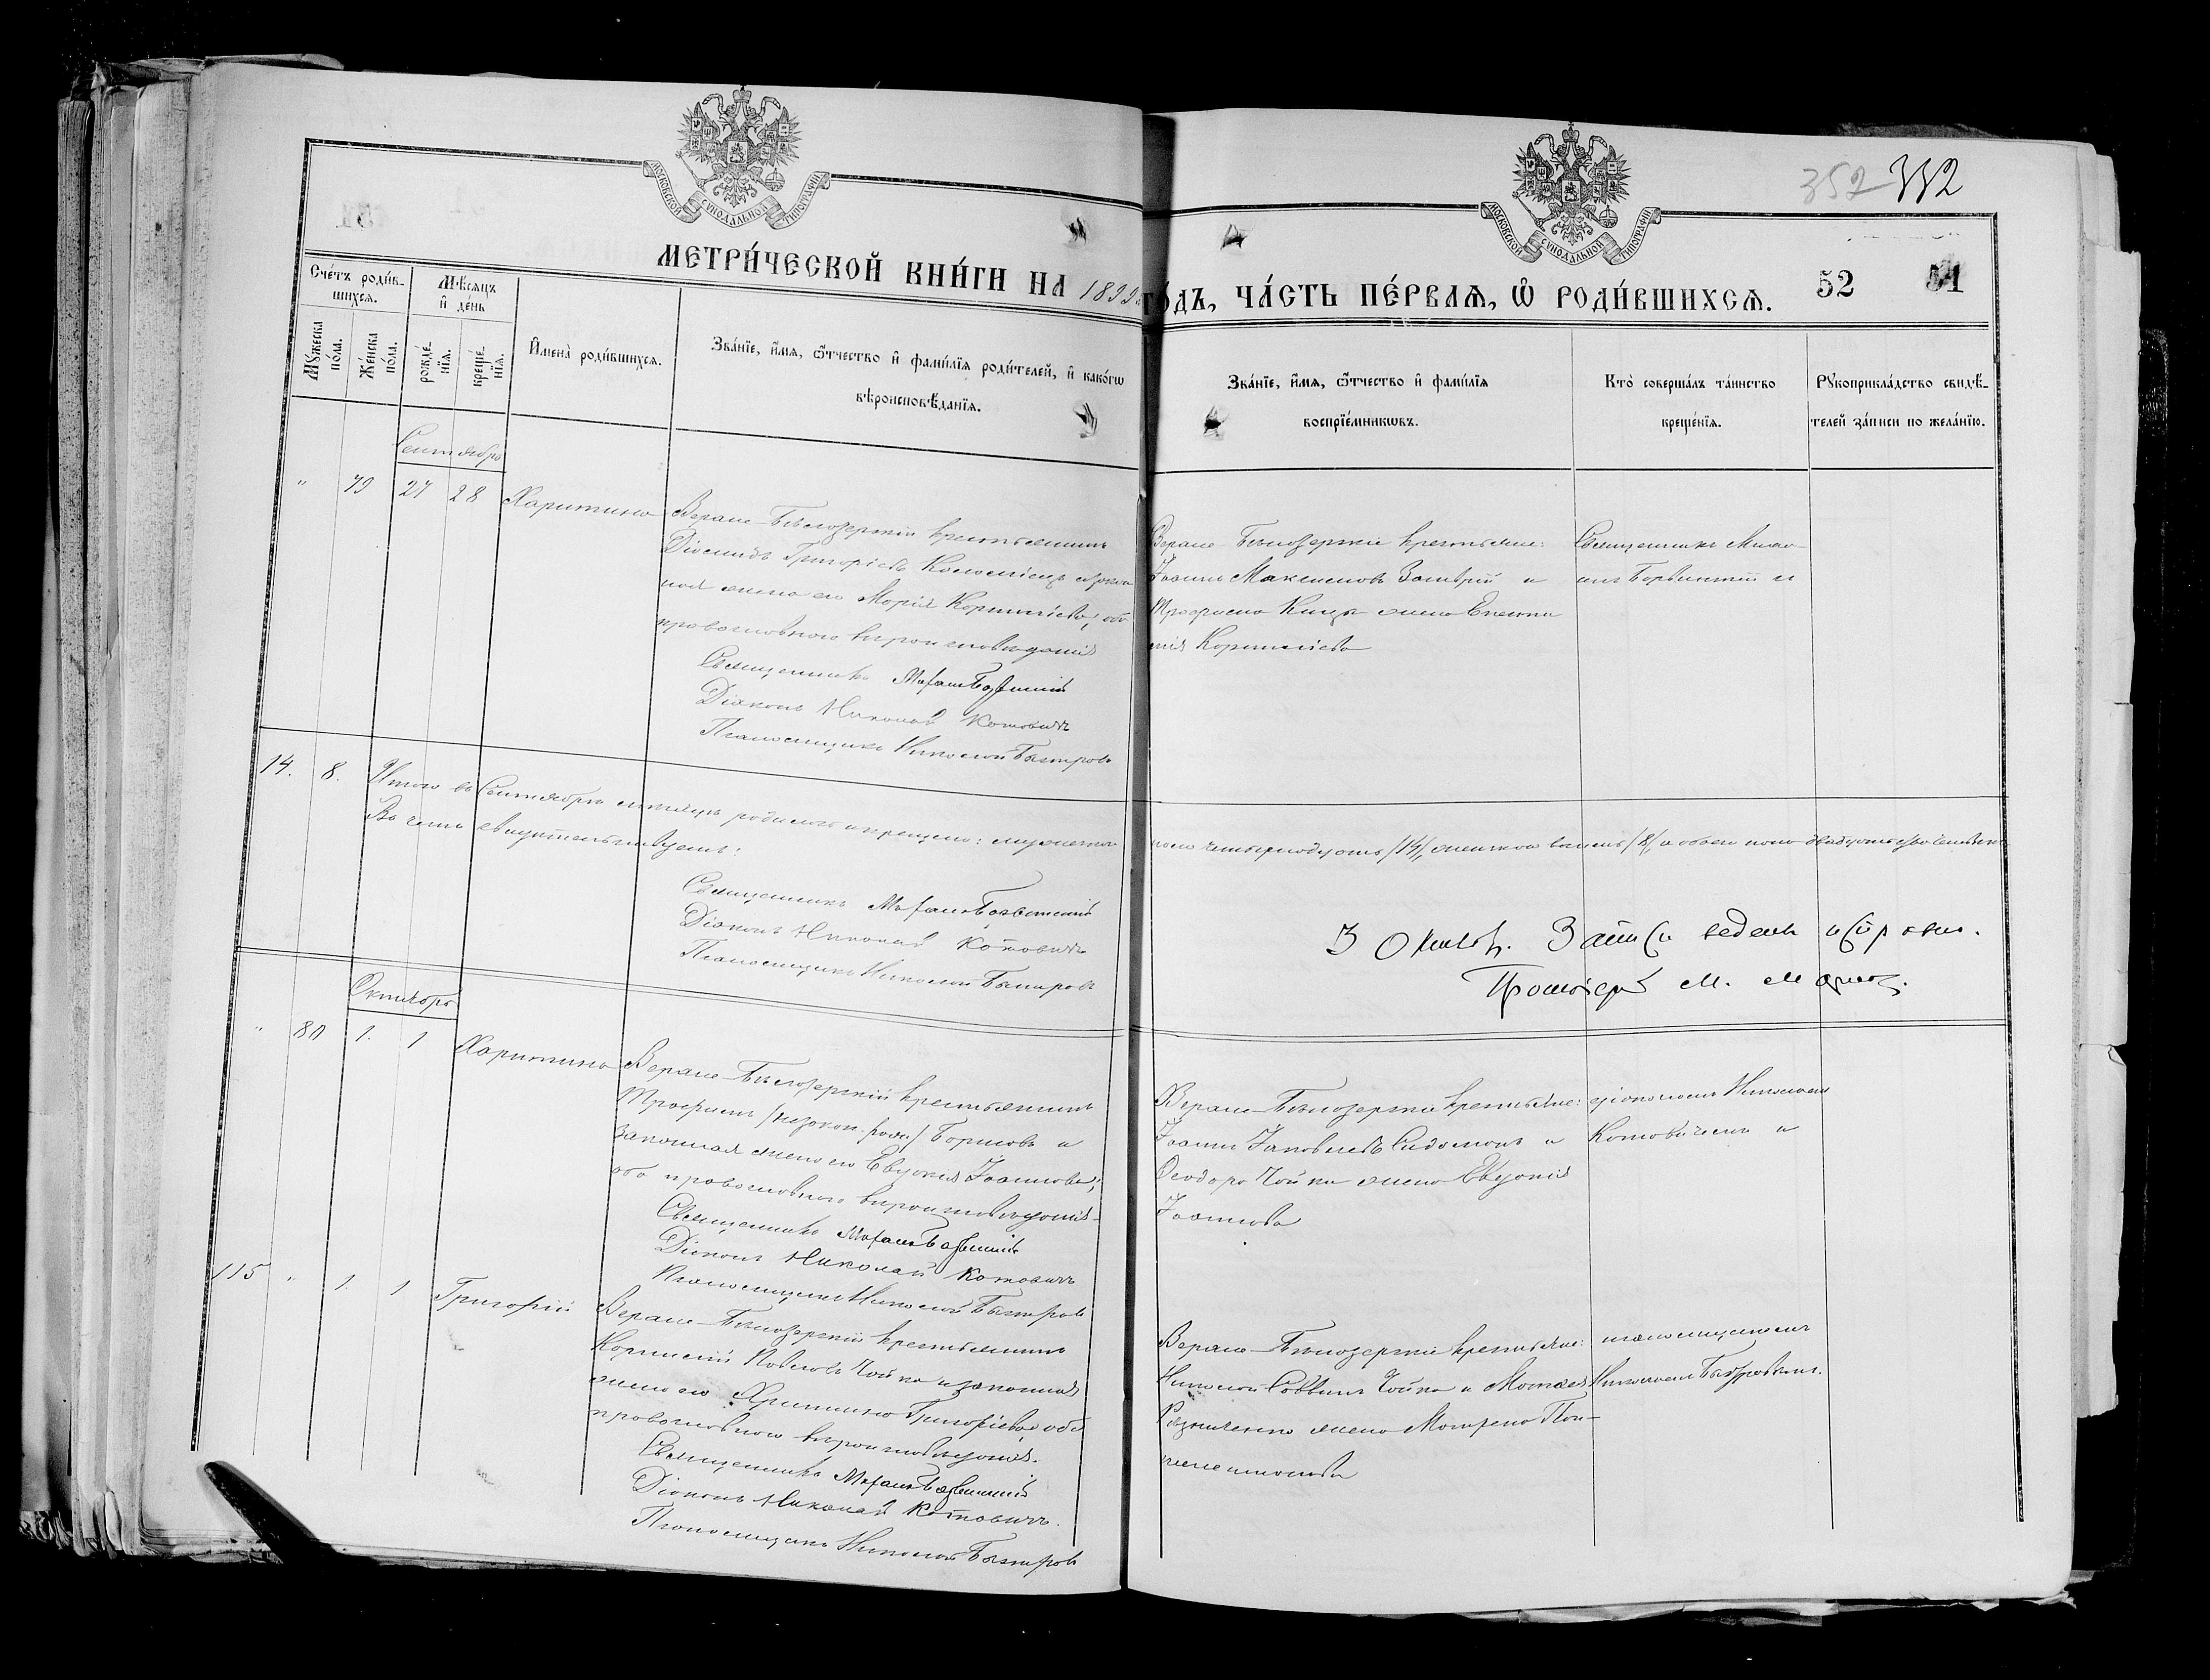 МОСКОВСКОЙ СѴНОДАЛЬНОЙ ТИПОГРАФІИ
МОСКОВСКОЙ СѴНОДАЛЬНОЙ ТИПОГРАФІИ
352 332
МЕТРИ́ЧЕСКОЙ КНИ́ГИ НА 1899
ГО́ДЪ, ЧА́СТЬ ПЕ́РВАѦ, Ѡ҆ РОДИ́ВШИХСѦ.
52 51
Сче́тъ роди́в-
шихсѧ.
Мѣ́сѧцъ
и҆ де́нь
Мꙋ́жеска
по́ла.
Же́нска
по́ла.
рожде́-
нїѧ.
креще́-
нїѧ.
И҆мена̀ роди́вшихсѧ.
Зва́нїе, и҆́мѧ, ѻ҆́тчество и҆ фами́лїѧ роди́телей, и҆ како́гѡ
вѣроисповѣ́данїѧ.
Зва́нїе, и҆́мѧ, ѻ҆́тчество и҆ фами́лїѧ
воспрїе́мникѡвъ.
Кто̀ соверша́лъ та́инство
креще́нїѧ.
Рꙋкоприкла́дство свидѣ́-
телей за́писи по жела́нїю.
Сентябрь
" 79 27 28 Харитина
Верхне-Бѣлозерскій крестьянинъ
Діомидъ Григоріевъ Коломіецъ и закон
ная жена его Марія Корниліева; оба
православного вѣроисповѣданія
Священникъ
Діаконъ Николай Котовичъ
Псаломщикъ Николай Быстровъ
Верхне-Бѣлозерскіе крестьяне:
Іоаннъ Максимовъ и
Трофима жена
Корниліева
Священникъ
14. 8. Итого въ Сентябрѣ мѣсяцѣ родилось и крещено: мужескаго
пола четырнадцать /14/, женскаго восемь /8/, а обоего пола двадцать два человѣка
Въ чемъ свидѣтельствуемъ:
Священникъ
Діаконъ Николай Котовичъ
Псаломщикъ Николай Быстровъ
3 Октяб. Записи ведены исправно.
Протоіерей М.
Октябрь
" 80 1. 1 Харитина
Верхне-Бѣлозерскій крестьянинъ
Трофимъ /незакон. рожд/ Борисовъ и
законная жена его Евдокія Іоаннова;
оба православного вѣроисповѣданія
Священникъ
Діаконъ Николай Котовичъ
Псаломщикъ Николай Быстровъ
Верхне-Бѣлозерскіе крестьяне:
Іоаннъ Іаковлевъ и
Ѳеодора Чайки жена Евдокія
Іоаннова
діакономъ Николаемъ
Котовичемъ и
115 " 1. 1 Григорій
Верхне-Бѣлозерскій крестьянинъ
Корнилій Павловъ Чайка и законная
жена его Христина Григоріева; оба
православного вѣроисповѣданія.
Священникъ
Діаконъ Николай Котовичъ.
Псаломщикъ Николай Быстровъ
Верхне-Бѣлозерскіе крестьяне:
Николай Саввинъ Чайка и Матѳея
Резниченка жена Матрена Пан-
телеимонова
псаломщикомъ
Николаемъ Быстровымъ.